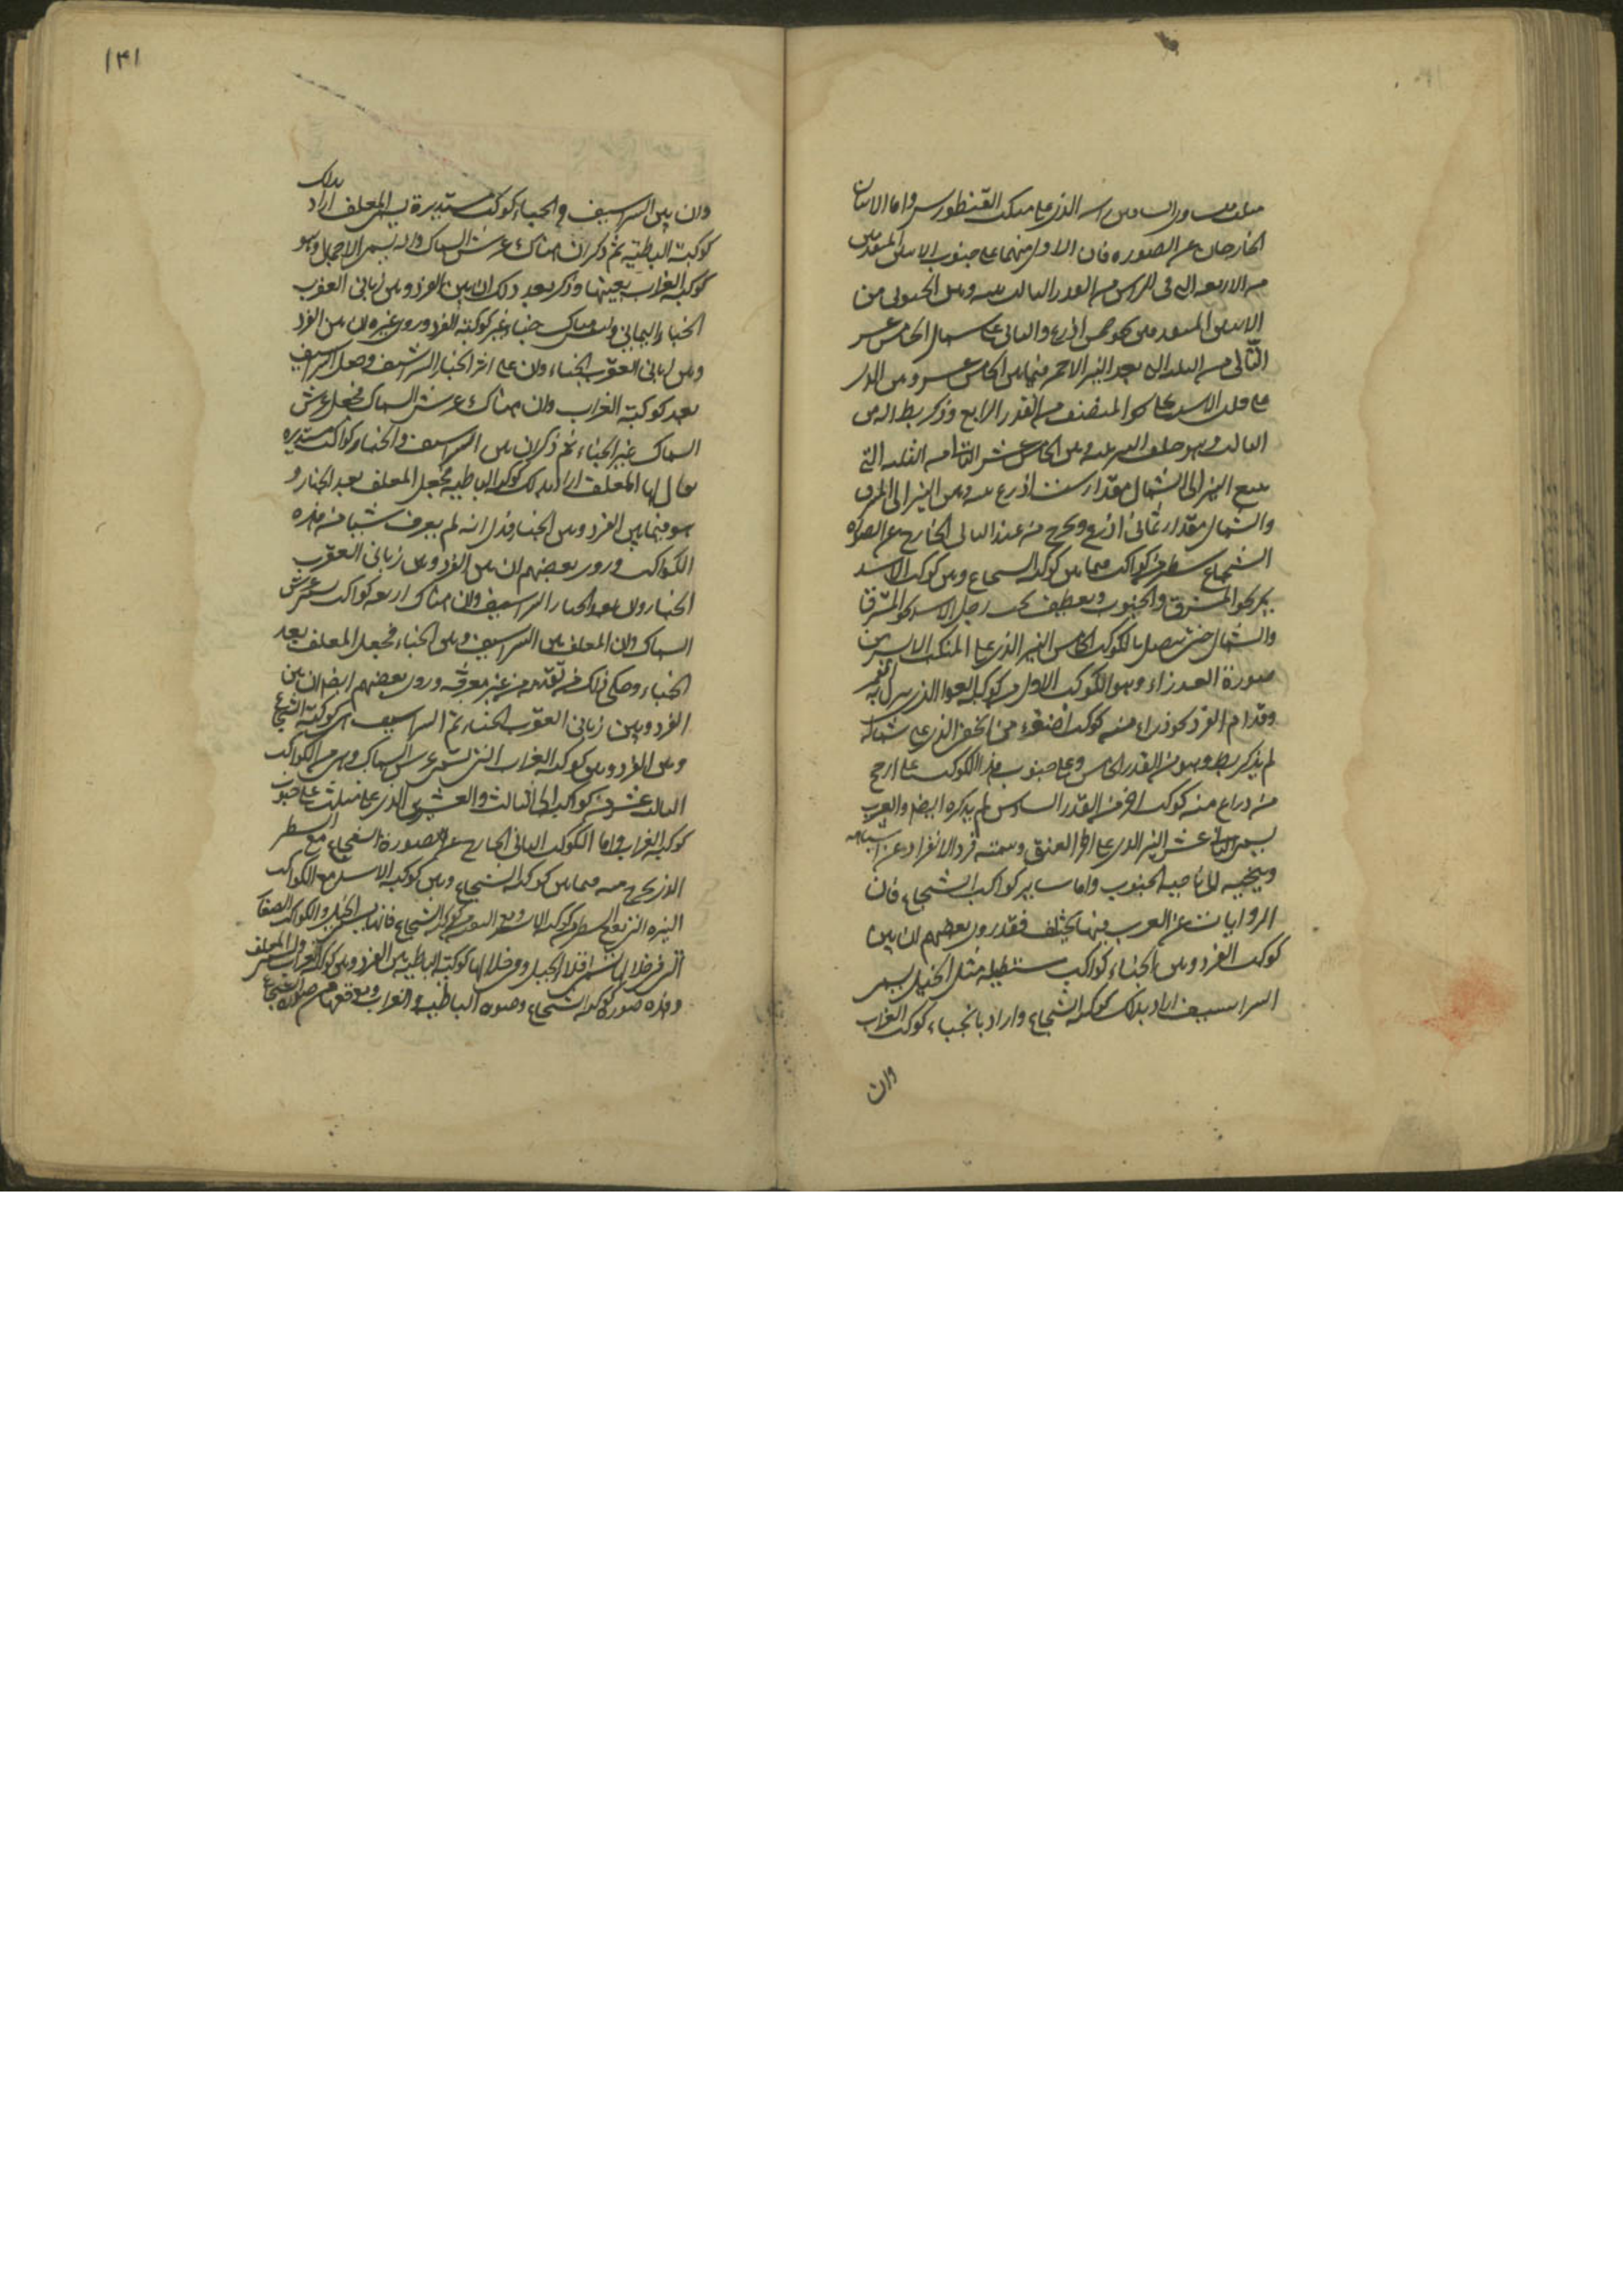 الخارجان عن الصورة فان الاول منهما على جنوب
من الاربعة التى فى الراس من القدر الثالث وبين الجنوبى من
الثالثة من الثلثة التى بعد النير الاحمر فيما بين الخامس عشر وبين
على قلب الاسد المنصف من القدر الرابع وذكر بطلميوس
الثالث وهو خلف
تتبع النير الى الشمال مقدار ست اذرع وبين النير الى المشرق
والشمال مقدار ثمانى اذرع ويخرج من عند الثانى الخارج عن الصورة
الشجاع سطر من كواكب فيما بين كوكبة الشجاع وبين كوكبة الاسد
يمر نحو المشرق والجنوب وينعطف تحت رجل الاسد نحو المشرق
والشمال حتى يتصل بالكوكب الخامس النير الذى على المنكب الايسر من
صورة العذراء وهو الكوكب الاول من كوكبة العوا الذى ينزل به القمر
وقدام الفرد نحو ذراع منه كوكب اصغر من الذى على شماله
لم يذكره بطلميوس وهو من القدر الخامس وعلى جنوب هذا الكوكب على ارجح
من ذراع منه كوكب اخر من القدر السادس لم يذكره ايضا والعرب
يسمى الثانى عشر النير الذى على اخر العنق وسمته فردا لانفراده عن اشباهه
وتنحيه الى ناحية الجنوب واما ساير كواكب الشجاع فان
الروايات عن العرب فيها يختلف فقد روى بعضهم ان بين
كوكب الفرد وبين الخباء كواكب مستطيلة مثل الخيل يسمى
الشراسيف اراد بذلك كوكبة الشجاع واراد بالخباء كوكبة الغراب
وان
١٣١
وان بين الشراسيف والخباء كوكب مستديرة يسمى المعلف اراد بذلك
كوكبة الباطية ثم ذكر ان هناك عرش السماك وانه يسمى الاحمال وهو
كوكبة الغراب بعينها وذكر بعد ذلك ان بين الفرد وبين زبانى العقرب
الخباء اليمانى وليس هناك خباء غير كوكبة الغراب وروى غيره ان بين الفرد
وبين زبانى العقرب الخباء وان على اثر الخباء الشراسيف وجعل الشراسيف
بعد كوكبة الغراب وان هناك عرش السماك فجعل عرش
السماك غير الخباء ثم ذكر ان بين الشراسيف والخباء كواكب مستديرة
يقال لها المعلف اراد بذلك كوكبة الباطية فجعل المعلف بعد الخباء و
هو فيما بين الفرد وبين الخباء فدل انه لم يعرف شيئا من هذه
الكواكب وروى بعضهم ان بين الفرد وبين زبانى العقرب
الخباء وان بعد الخباء الشراسيف وان هناك اربعة كواكب يسمى عرش
السماك وان المعلف بين الشراسيف وبين الخباء فجعل المعلف بعد
الخباء وحكى ذلك من تقدمه من غير معرفة وروى بعضهم ايضا ان بين
الفرد وبين زبانى العقرب الخباء ثم الشراسيف اى كوكبة الشجاع
وبين الفرد وبين كوكبة الغراب التى يسمى عرش السماك وهى من الكواكب
الثالث عشر من كواكبه الى الثالث والعشرين الذى على مثلث على جنوب
كوكبة الغراب واما الكوكب الثانى الخارج عن صورة الشجاع مع السطر
الذى يخرج منه فيما بين كوكبة الشجاع وبين كوكبة الاسد مع الكواكب
التى فى خلالها يسمى افلاء الخيل وفى خلالها كوكبة الباطية بين الفرد وبين كوكبة الغراب يسمى المعلف
وهذه صورة كوكبة الشجاع وصورة الباطية والغراب وموقعهما من صورة الشجاع